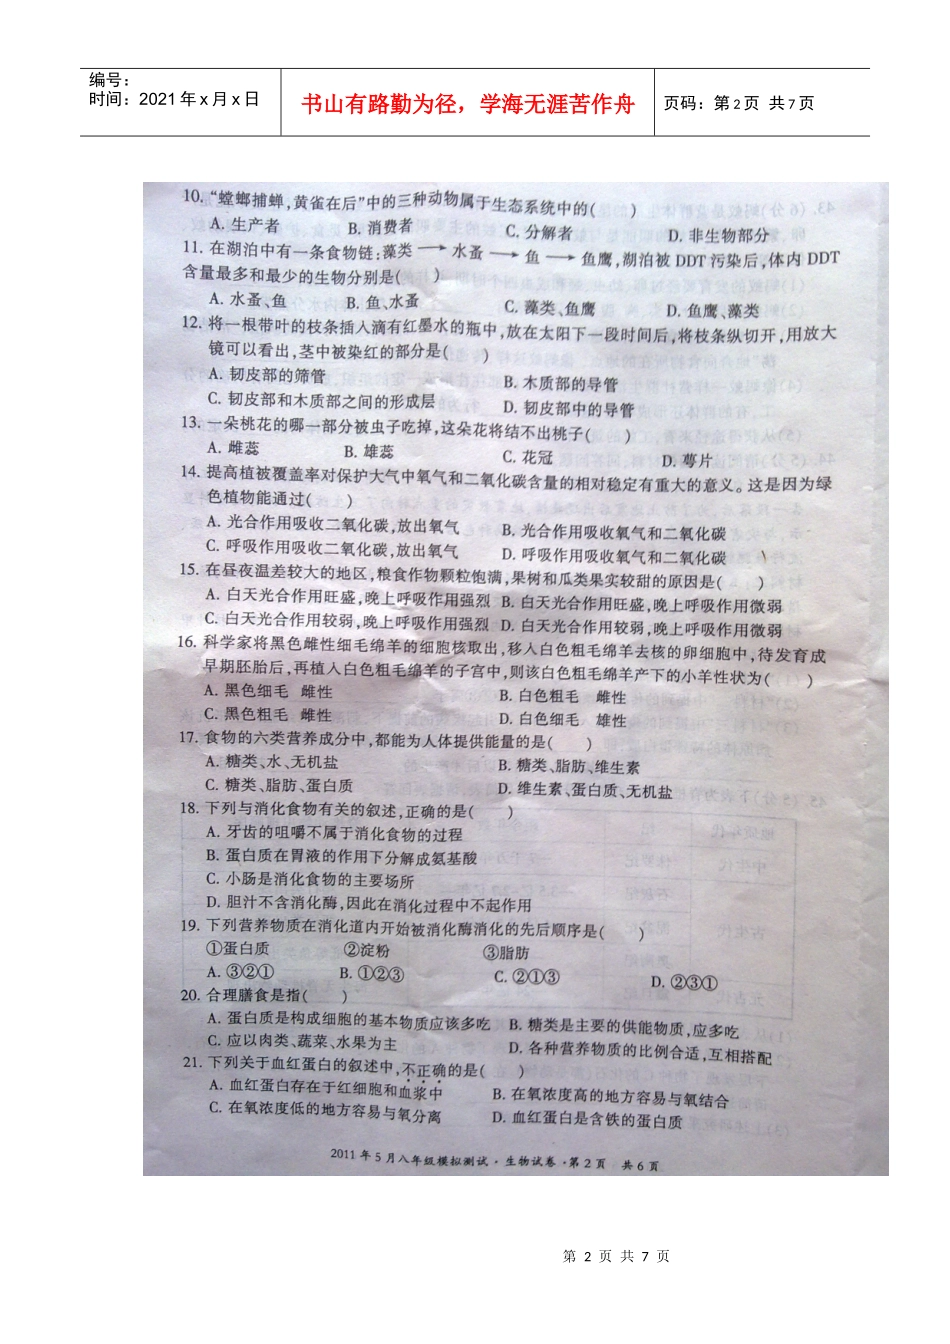 编号：
时间：2021年x月x日
书山有路勤为径，学海无涯苦作舟
页码：第2页 共7页
10. “螳螂捕蝉,黄雀在后”中的三种动物属于生态系统中的(　　)
A. 生产者　B. 消费者　C. 分解者　D. 非生物部分
11. 在湖泊中有一条食物链:藻类 → 水蚤 → 鱼 → 鱼鹰,湖泊被 DDT 污染后,体内 DDT
含量最多和最少的生物分别是(　　)
A. 水蚤、鱼　B. 鱼、水蚤　C. 藻类、鱼鹰　D. 鱼鹰、藻类
12. 将一根带叶的枝条插入滴有红墨水的瓶中,放在太阳下一段时间后,将枝条纵切开,用放大
镜可以看出,茎中被染红的部分是(　　)
A. 韧皮部的筛管　B. 木质部的导管
C. 韧皮部和木质部之间的形成层　D. 韧皮部中的导管
13. 一朵桃花的哪一部分被虫子吃掉,这朵花将结不出桃子(　　)
A. 雌蕊　B. 雄蕊　C. 花冠　D. 萼片
14. 提高植被覆盖率对保护大气中氧气和二氧化碳含量的相对稳定有重大的意义。这是因为绿
色植物能通过(　　)
A. 光合作用吸收二氧化碳,放出氧气　B. 光合作用吸收氧气和二氧化碳
C. 呼吸作用吸收二氧化碳,放出氧气　D. 呼吸作用吸收氧气和二氧化碳
15. 在昼夜温差较大的地区,粮食作物颗粒饱满,果树和瓜类果实较甜的原因是(　　)
A. 白天光合作用旺盛,晚上呼吸作用强烈　B. 白天光合作用旺盛,晚上呼吸作用微弱
C. 白天光合作用较弱,晚上呼吸作用强烈　D. 白天光合作用较弱,晚上呼吸作用微弱
16. 科学家将黑色雌性细毛绵羊的细胞核取出,移入白色粗毛绵羊去核的卵细胞中,待发育成
早期胚胎后,再植入白色粗毛绵羊的子宫中,则该白色粗毛绵羊产下的小羊性状为(　　)
A. 黑色细毛　雌性　B. 白色粗毛　雌性
C. 黑色粗毛　雌性　D. 白色细毛　雄性
17. 食物的六类营养成分中,都能为人体提供能量的是(　　)
A. 糖类、水、无机盐　B. 糖类、脂肪、维生素
C. 糖类、脂肪、蛋白质　D. 维生素、蛋白质、无机盐
18. 下列与消化食物有关的叙述,正确的是(　　)
A. 牙齿的咀嚼不属于消化食物的过程
B. 蛋白质在胃液的作用下分解成氨基酸
C. 小肠是消化食物的主要场所
D. 胆汁不含消化酶,因此在消化过程中不起作用
19. 下列营养物质在消化道内开始被消化酶消化的先后顺序是(　　)
①蛋白质　②淀粉　③脂肪
A. ③②①　B. ①②③　C. ②①③　D. ②③①
20. 合理膳食是指(　　)
A. 蛋白质是构成细胞的基本物质应该多吃　B. 糖类是主要的供能物质,应多吃
C. 应以肉类、蔬菜、水果为主　D. 各种营养物质的比例合适,互相搭配
21. 下列关于血红蛋白的叙述中,不正确的是(　　)
A. 血红蛋白存在于红细胞和血浆中　B. 在氧浓度高的地方容易与氧结合
C. 在氧浓度低的地方容易与氧分离　D. 血红蛋白是含铁的蛋白质
2011年5月八年级模拟测试·生物试卷·第2页 共6页
第 2 页 共 7 页